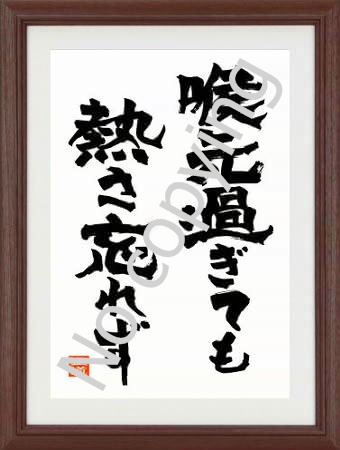 喉元過ぎても
熱さ忘れず
No copying